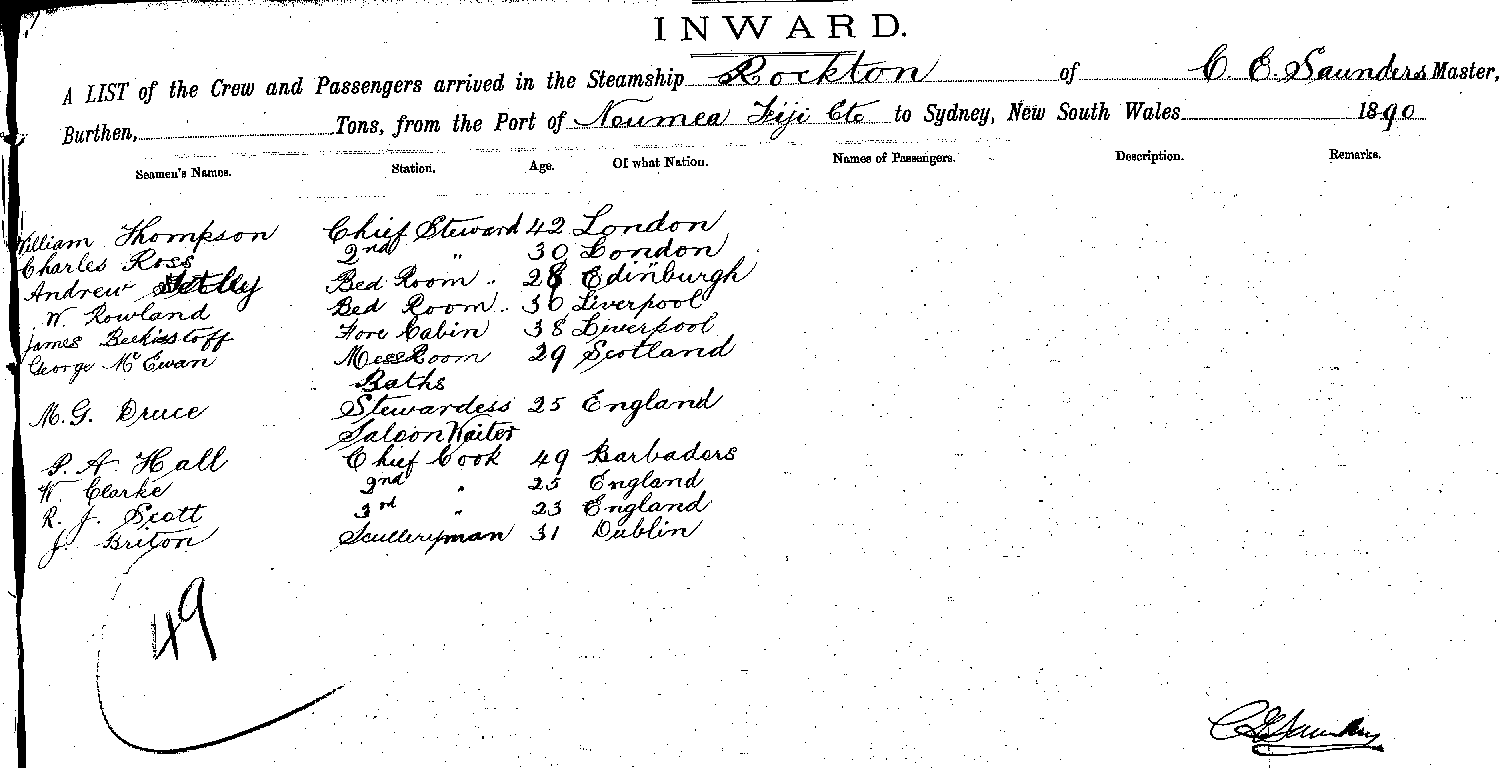 INWARD.
A LIST of the Crew and Passengers arrived in the Steamship Rockton of C. E. Saunders Master,
Burthen, Tons, from the Port of Noumea Fiji Etc to Sydney, New South Wales 1890
Seamen's Names. Station. Age. Of what Nation. Names of Passengers. Description. Remarks.
William Thompson Chief Steward 42 London
Charles Ross 2nd " 30 London
Andrew Bed Room " 28 Edinburgh
W. Rowland Bed Room " 30 Liverpool
James Fore Cabin 38 Liverpool
George McEwan Mess Room 29 Scotland
Baths
M. G. Druce Stewardess 25 England
Saloon Waiter
P. A. Hall Chief Cook 49 Barbadors
W. Clarke 2nd " 25 England
R. J. Scott 3rd " 23 England
J. Briton Sculleryman 31 Dublin
49
C E Saunders